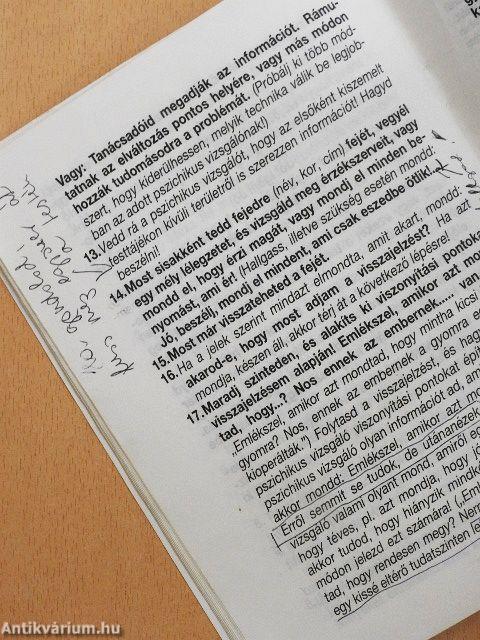 Vagy: Tanácsadóid megadják az információt. Rámu-
tatnak az elváltozás pontos helyére, vagy más módon
hozzák tudomásodra a problémát. (Próbálj ki több mód-
szert, hogy kiderülhessen, melyik technika válik be legjob-
ban az adott pszichikus vizsgálónak!)
13. Vedd rá a pszichikus vizsgálót, hogy az elsőként kiszemelt
testtájékon kívüli területről is szerezzen információt! Hagyd
beszélni!
14. Most sisakként tedd fejedre (név, kor, cím) fejét, vegyél
egy mély lélegzetet, és vizsgáld meg érzékszerveit, vagy
mondd el, hogy érzi magát, vagy mondj el minden be-
nyomást, ami ér! (Hallgass, illetve szükség esetén mondd:
Jó, beszélj, mondj el mindent, ami csak eszedbe ötlik!
15. Most már visszateheted a fejét.
16. Ha a jelek szerint mindazt elmondta, amit akart, mondd:
akarod-e, hogy most adjam a visszajelzést? Ha azt
mondja, készen áll, akkor térj át a következő lépésre!
17. Maradj szinteden, és alakíts ki viszonyítási pontokat
visszajelzésem alapján! Emlékszel, amikor azt mon
tad, hogy...? Nos ennek az embernek..... van
„Emlékszel, amikor azt mondtad, hogy mintha kicsi
gyomra? Nos, ennek az embernek a gyomra e
kioperálták.") Folytasd a visszajelzést, és hag
pszichikus vizsgáló viszonyítási pontokat épít
pszichikus vizsgáló olyan információt ad, am
akkor mondd: Emlékszel, amikor azt mo
Erről semmit se tudok, de utánanézek
vizsgáló valami olyant mond, amiről eg
hogy téves, pl. azt mondja, hogy jó
akkor tudod, hogy hiányzik mindké
módon jelezd ezt számára! („Em
tad, hogy rendesen megy? Nem
egy kissé eltérő tudatszinten
Antikvárium.hu